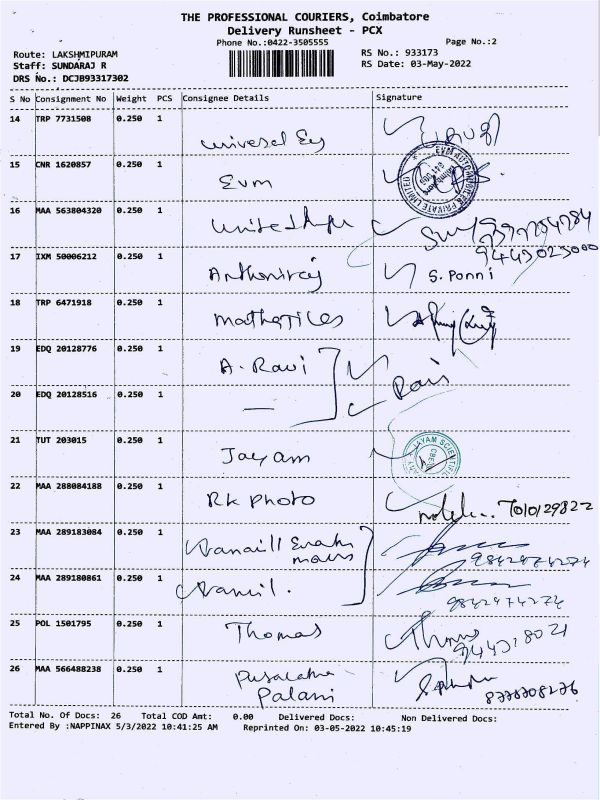 THE PROFESSIONAL COURIERS, Coimbatore
Delivery Runsheet - PCX
Phone No.:0422-3505555 Page No.:2
Route: LAKSHMIPURAM RS No.: 933173
Staff: SUNDARAJ R RS Date: 03-May-2022
DRS No.: DCJB93317302
S No Consignment No Weight PCS Consignee Details Signature
14 TRP 7731508 0.250 1
15 CNR 1620857 0.250 1 Evm
16 MAA 563804320 0.250 1
9443025000
17 IXM 50006212 0.250 1 Anthoniraj S. Ponni
18 TRP 6471918 0.250 1
19 EDQ 20128776 0.250 1 A. Ravi Ravi
20 EDQ 20128516 0.250 1 —
21 TUT 203015 0.250 1 Jayam JAYAM SCIENTIFIC
22 MAA 288084188 0.250 1 RK Photo 7010129822
23 MAA 289183084 0.250 1 9842474274
24 MAA 289180861 0.250 1 9842474274
25 POL 1501795 0.250 1 Thomas
26 MAA 566488238 0.250 1 Palani 8778708276
Total No. Of Docs: 26 Total COD Amt: 0.00 Delivered Docs: Non Delivered Docs:
Entered By :NAPPINAX 5/3/2022 10:41:25 AM Reprinted On: 03-05-2022 10:45:19